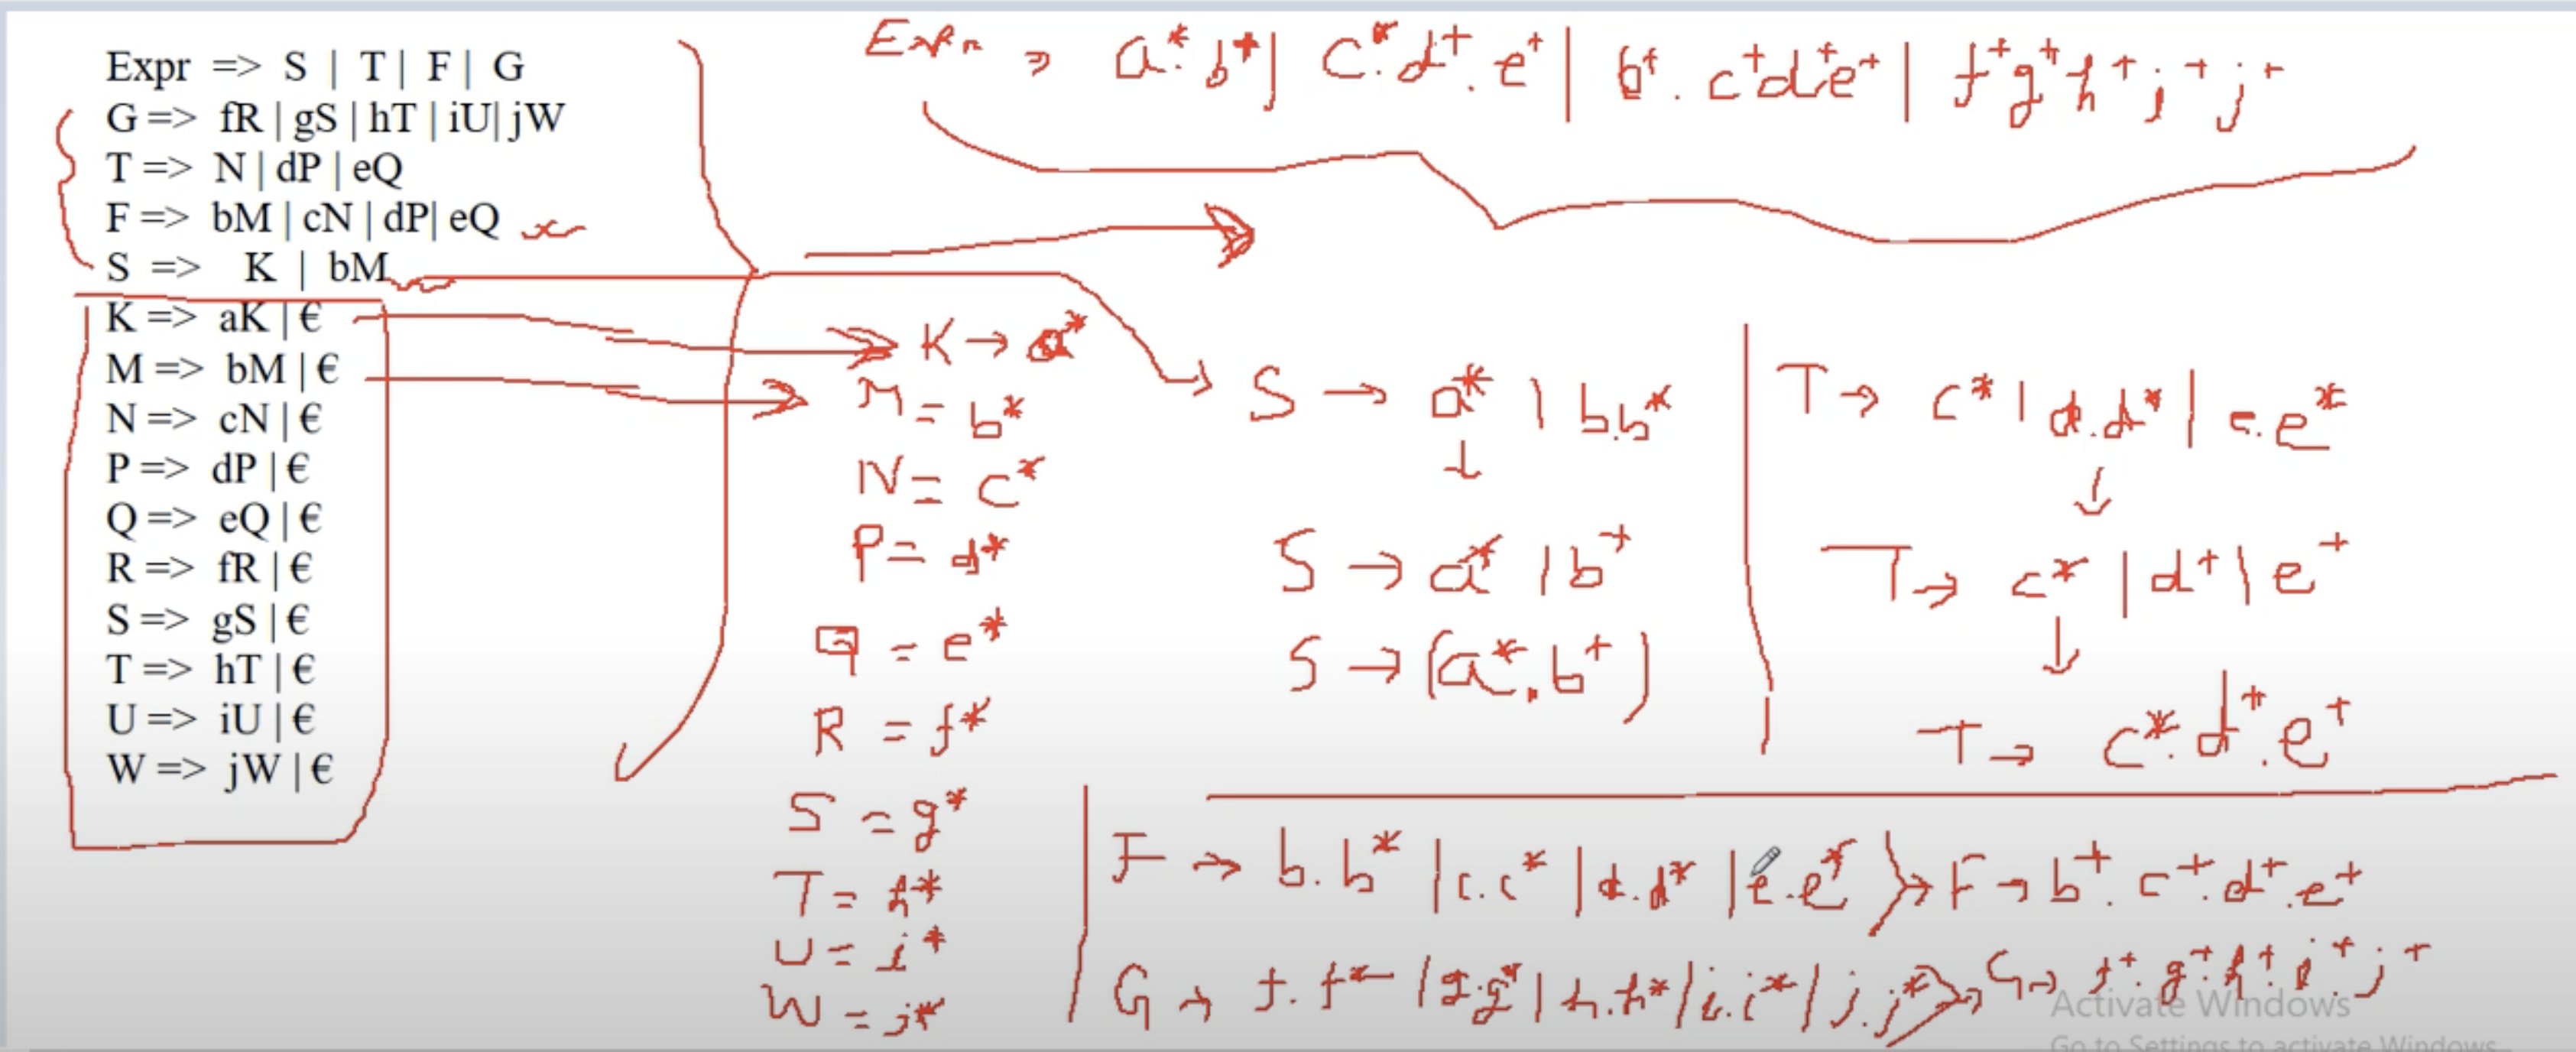 Expr => S | T | F | G
G => fR | gS | hT | iU| jW
T => N | dP | eQ
F => bM | cN | dP| eQ
S => K | bM
K => aK | €
M => bM | €
N => cN | €
P => dP | €
Q => eQ | €
R => fR | €
S => gS | €
T => hT | €
U => iU | €
W => jW | €
Expr ⇒ a*.b+| c*.d+.e+| b+.c+d+e+| f+g+h+i+j+
K → a*
M = b*
N = c*
P = d*
Q = e*
R = f*
S = g*
T = h*
U = i*
W = j*
S → a* | b.b*
↓
S → a* | b+
S → (a*.b+)
T → c* | d.d* | e.e*
↓
T → c* | d+ | e+
↓
T → c*.d+.e+
F → b.b* |c.c* |d.d* |e.e* → F → b+.c+.d+.e+
G → f.f* |g.g*| h.h*|i.i*|j.j* → G → f+.g+.h+.i+j+
Activate Windows
Go to Settings to activate Windows.